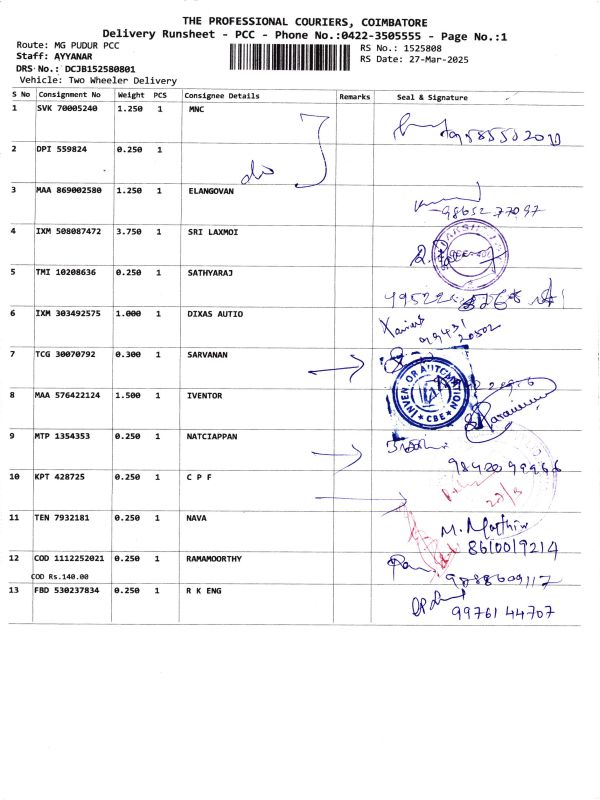 THE PROFESSIONAL COURIERS, COIMBATORE
Delivery Runsheet - PCC - Phone No.:0422-3505555 - Page No.:1
Route: MG PUDUR PCC
RS No.: 1525808
Staff: AYYANAR
RS Date: 27-Mar-2025
DRS No.: DCJB152580801
Vehicle: Two Wheeler Delivery
S No Consignment No Weight PCS Consignee Details Remarks Seal & Signature
1 SVK 70005240 1.250 1 MNC
2 DPI 559824 0.250 1 do
3 MAA 869002580 1.250 1 ELANGOVAN
98652 77097
4 IXM 508087472 3.750 1 SRI LAXMOI
5 TMI 10208636 0.250 1 SATHYARAJ
6 IXM 303492575 1.000 1 DIXAS AUTIO
99431
20502
7 TCG 30070792 0.300 1 SARVANAN
8 MAA 576422124 1.500 1 IVENTOR
CBE
9 MTP 1354353 0.250 1 NATCIAPPAN
10 KPT 428725 0.250 1 C P F
11 TEN 7932181 0.250 1 NAVA
M. Mathiv
8610019214
12 COD 1112252021 0.250 1 RAMAMOORTHY
COD Rs.140.00
9888609117
13 FBD 530237834 0.250 1 R K ENG
99761 44707